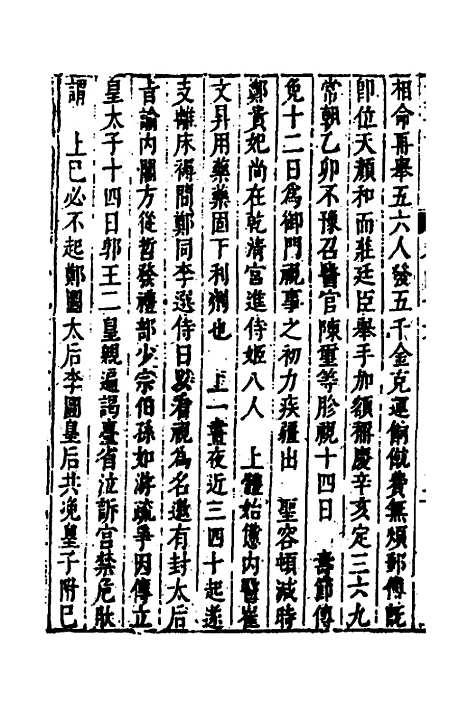 相命再舉五六人發五千金充運餉僦費無煩郵傳旣
卽位天顏和而莊廷臣舉手加額稱慶辛亥定三六九
常朝乙卯不豫召醫官陳璽等胗視十四日　壽節傳
免十二日爲御門視事之初力疾疆出　聖容頓減時
鄭貴妃尚在乾清宮進侍姬八人　上體始憊內醫崔
文昇用藥藥固下利劑也　上一晝夜近三四十起遂
支離床褥間鄭同李選侍日以看視爲名邀有封太后
旨諭內閣方從哲發禮部少宗伯孫如游疏爭因傳立
皇太子十四日郭王二皇親遍謁臺省泣訴宮禁危狀
謂　上已必不起鄭圖太后李圖皇后共挽皇子附已